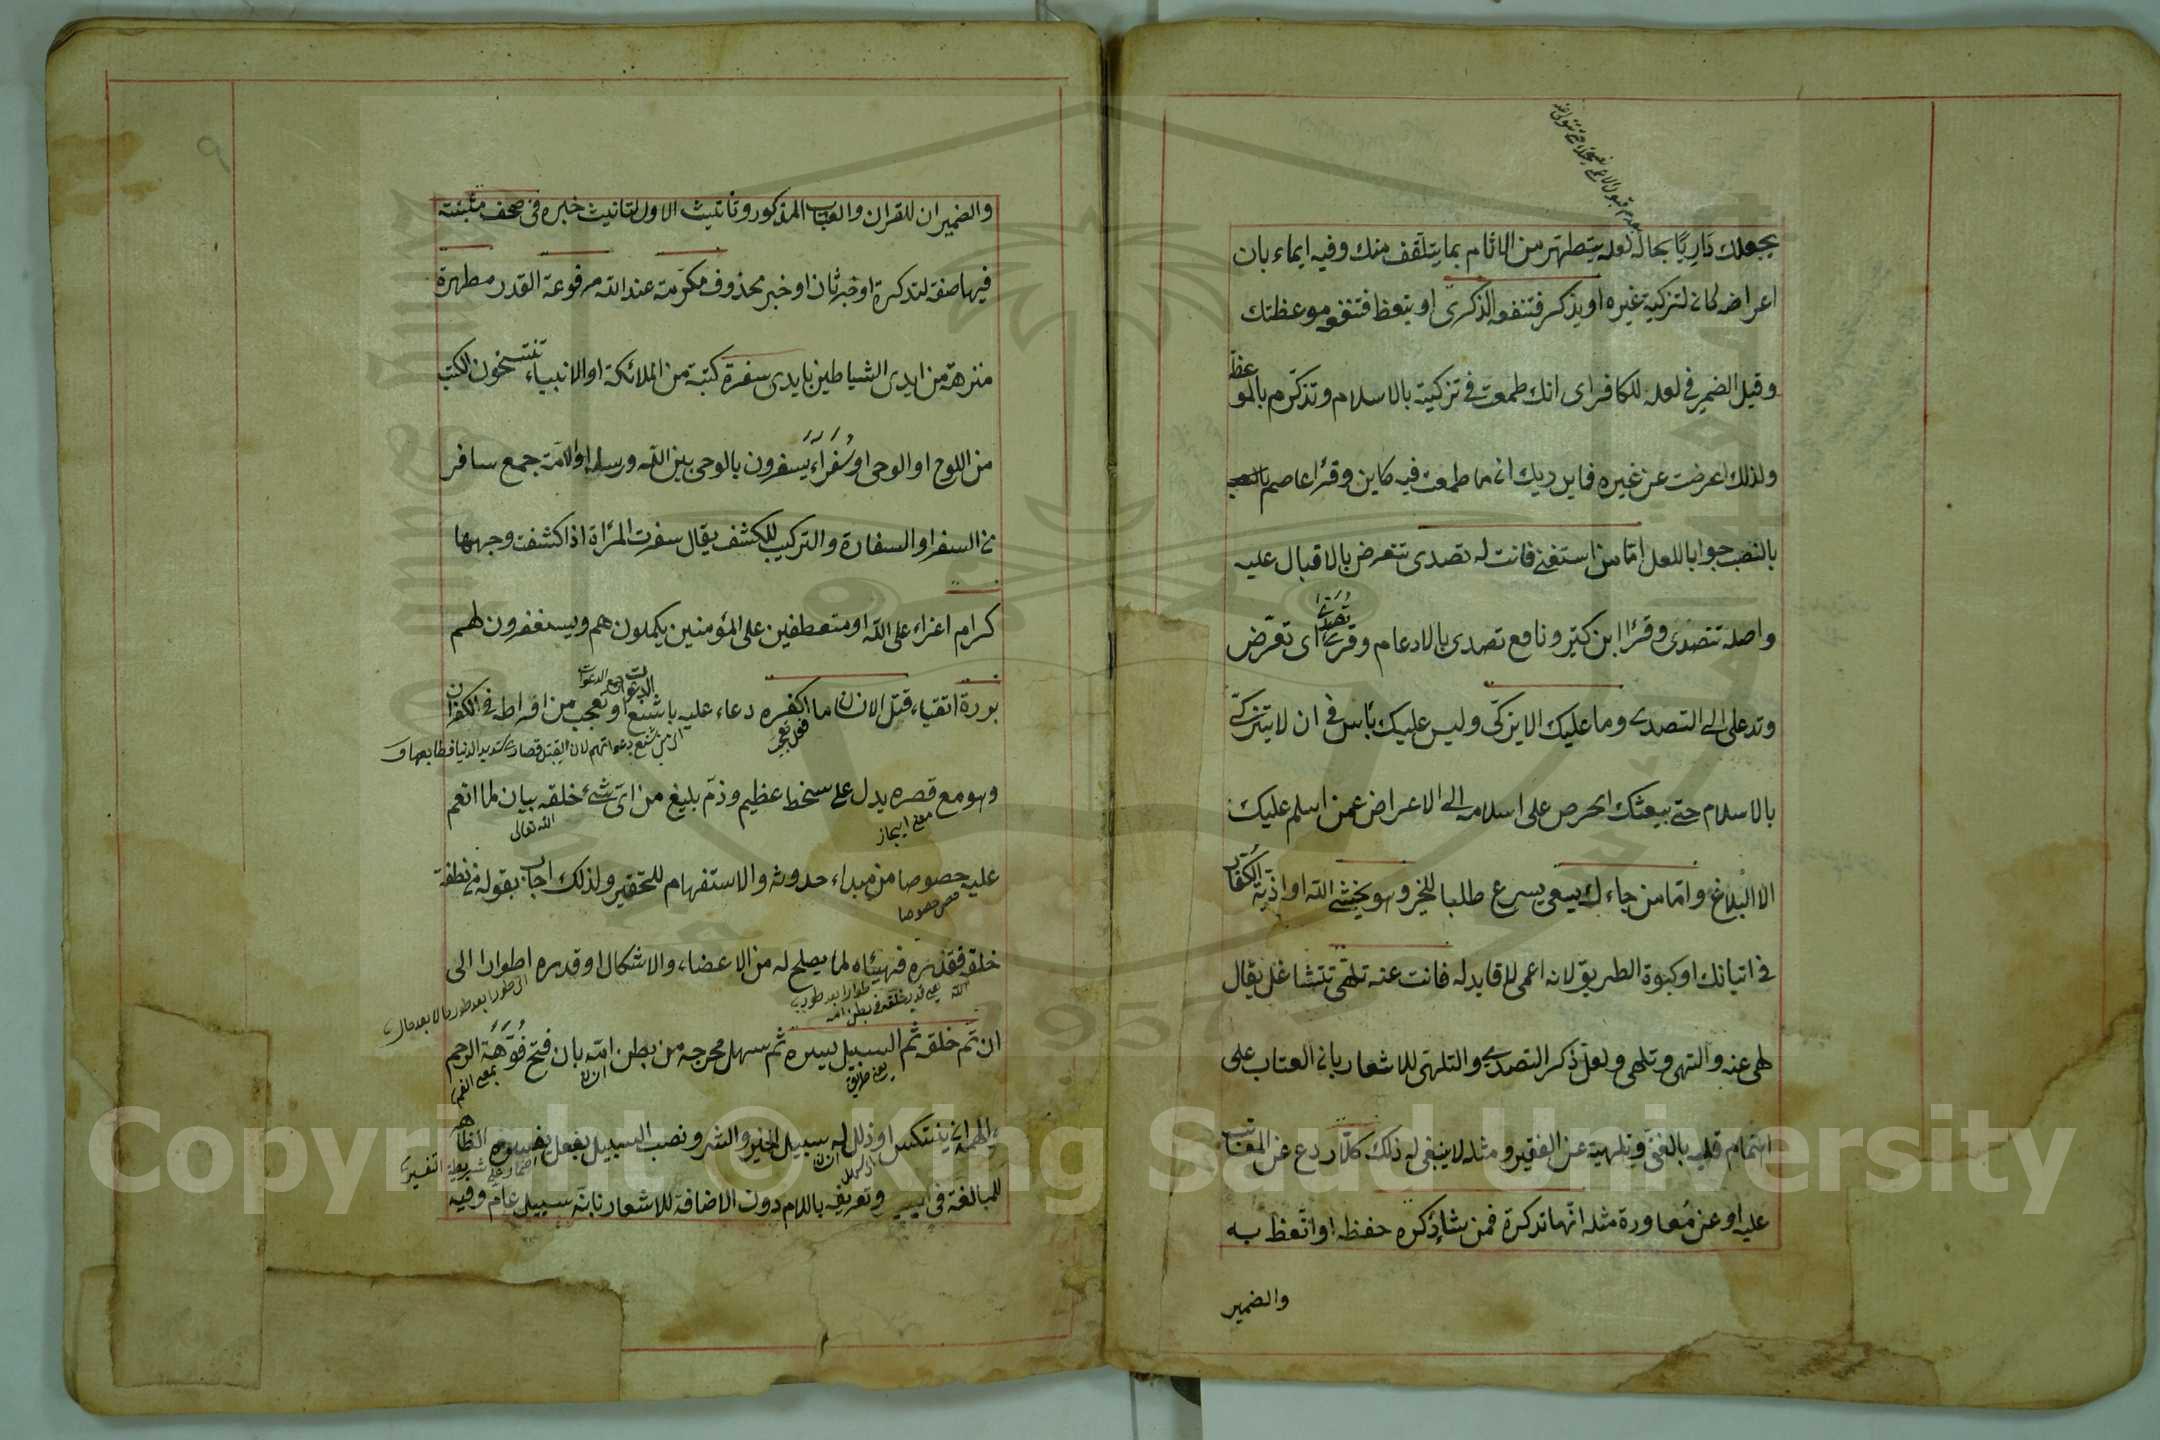 يجعلك داريًا بحاله لعله يتطهر من الاثام بما يتلقف منك وفيه ايماء بان
اعراضه كان لتزكية غيره او يذكر فتنفعه الذكرى او يتعظ فتنفعه موعظتك
وقيل الضمير في لعله للكافر اى انك طمعت في تزكيته بالاسلام وتذكره بالموعظة
ولذلك اعرضت عن غيره فما يدريك ان ما طمعت فيه كاين وقرأ عاصم
بالنصب جوابا للعل اما من استغنى فانت له تصدى تتعرض بالاقبال عليه
واصله تتصدى وقرأ ابن كثير ونافع تصدى بالادغام وقرئ تُصَدَّى اى تعرّض
وتدعى الى التصدى وما عليك الا يزكّى وليس عليك بأس في ان لا يتزكّى
بالاسلام حتى يبعثك الحرص على اسلامه الى الاعراض عمن اسلم ان عليك
الا البلاغ واما من جاءك يسعى يسرع طالبا للخير وهو يخشى الله او اذيّة الكفّار
في اتيانك او كبوة الطريق لانه اعمى لا قايد له فانت عنه تلهّى تتشاغل يقال
لهى عنه والتهى وتلهى ولعل ذكر التصدى والتلهى للاشعار بان العتاب على
اهتمام قلبه بالغنى وتلهيه عن الفقير ومثله لا ينبغى له ذلك كلّا ردع عن المعاتب
عليه او عن معاودة مثله انّها تذكرة فمن شاء ذكره حفظه او اتّعظ به
والضمير
والضميران للقران والعتاب المذكور وتانيث الاول لتانيث خبره في صحف مثبتة
فيها صفة لتذكرة او خبر ثان او خبر محذوف مكرّمة عند الله مرفوعة القدر مطهرة
منزهة من ايدى الشياطين بايدى سفرة كتبة من الملائكة او الانبياء تنتسخون الكتب
من اللوح او الوحى او سُفَرَاءَ يسفرون بالوحى بين الله ورسله او الامة جمع سافر
من السفر او السفارة والتركيب للكشف يقال سفرت المرأة اذا كشفت وجهها
كرام اعزاء على الله او متعطفين على المؤمنين يكملونهم ويستغفرون لهم
بررة اتقياء قتل الانسان ما اكفره دعاء عليه باشنع الدعوات وتعجب من افراطه في الكفران
فعل تعجب
وهو مع قصره يدل على سخط عظيم وذمّ بليغ من اىّ شئ خلقه بيان لما انعم
مع ايجاز
الله تعالى
عليه خصوصا من مبداء حدوثه والاستفهام للتحقير ولذلك اجاب بقوله من نطفة
خص خصوصا
خلقه فقدّره فهيّأه لما يصلح له من الاعضاء والاشكال او قدره اطوارا الى
ان تمّ خلقه ثم السبيل يسره ثم سهل مخرجه من بطن امّه بان فتح فُوَّهَةَ الرحم
بمعنى الفم
يعنى طريق
والهمه ان ينتكس او ذلل له سبيل الخير والشر ونصب السبيل بفعل يفسره الظاهر
للمبالغة في التيسير وتعريفه باللام دون الاضافة للاشعار بانه سبيل عام وفيه